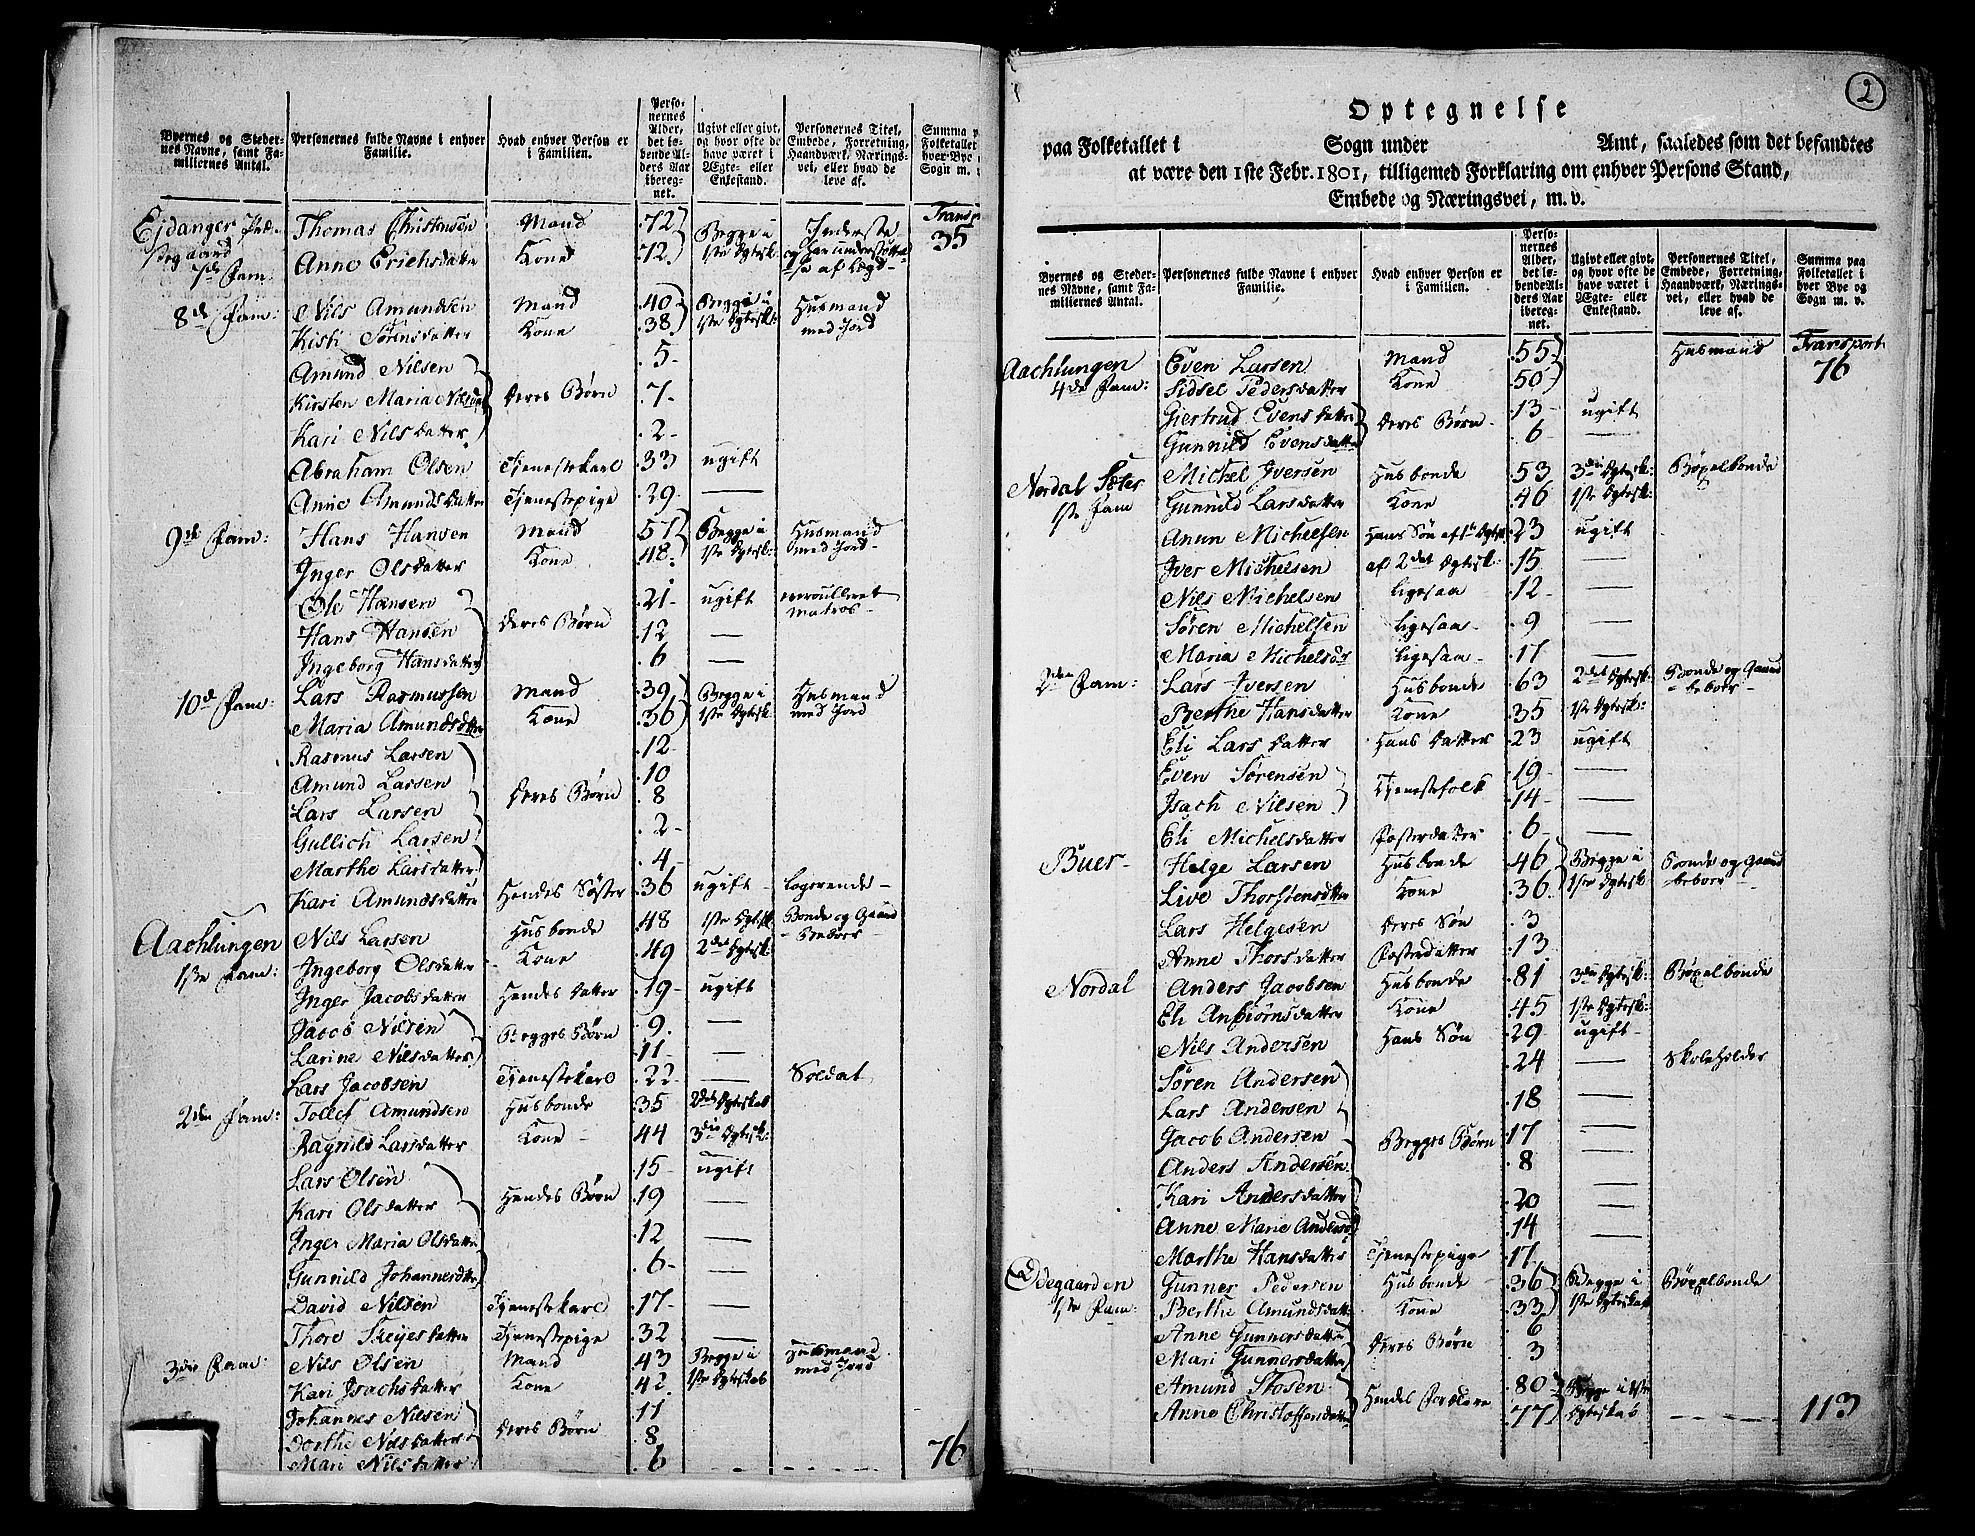 Byernes og Steder-
nes Navne, samt Fa-
miliernes Antal.
Personernes fulde Navne i enhver
Familie.
Hvad enhver Person er
i Familien.
Perso-
nernes
Alder,
det lø-
bende Al-
ders Aar
iberegn-
net.
Ugivt eller givt,
og hvor ofte de
have været i
Ægte- eller
Enkestand.
Personernes Titel,
Embede, Forretning,
Haandværk, Nærings-
vei, eller hvad de
leve af.
Summa p
Folketallet
hver Bye
Sogn m.
Ejdanger Thomas Christensen Mand 72 Begge i Inderste 35
Anne Erichsdatter Kone 72 1ste Egtesk.
7de Fam:
8de Fam: Nils Amundsen Mand 40 Begge i Husmand
Kisti Sørensdatter Kone 38 1ste Egtesk: med Jord
Amund Nilsen 5
Kirsten Maria Deres Børn 7
Kari Nilsdatter 2
Abraham Olsen Tjenestekarl 33 ugift
Anne Amundsdatter Tjenestepige 29 —
9de Fam: Hans Hansen Mand 57 Begge i Husmand
Inger Olsdatter Kone 48 1ste Egtesk: med Jord
Ole Hansen 21 ugift enroulleret
Hans Hansen Deres Børn 12 — matros
Ingeborg Hansdatter 6 —
10de Fam: Lars Rasmussen Mand 39 Begge i Husmand
Maria Amundsdatter Kone 36 1ste Egtesk: med Jord
Rasmus Larsen 12
Amund Larsen 10
Lars Larsen Deres Børn 8
Gullich Larsen 2
Marthe Larsdatter 4
Kari Amundsdatter Hendes Søster 36 ugift logerende
Aachlungen Nils Larsen Husbonde 48 1ste Egtesk Bonde og Gaard
Ingeborg Olsdatter Kone 49 2det Egtesk: Beboer
1ste Fam: Inger Jacobsdatter Hendes Datter 19 ugift
Jacob Nilsen Begges Børn 9 —
Larine Nilsdatter 11 —
Lars Jacobsen Tjenestekarl 22 — Soldat
2den Fam: Tollef Amundsen Husbonde 35 2det Egteskab
Ragnild Larsdatter Kone 44 3die Egtesk:
Lars Olsen 15 ugift
Kari Olsdatter Hendes Børn 19 —
Inger Maria Olsdatter 12 —
Gunnild Johannesdtter 6 —
David Nilsen Tjenestekarl 17 —
Thore Tjenestepige 32 —
3die Fam: Nils Olsen Mand 43 Begge i Husmand
Kari Isachsdatter Kone 42 1ste Egteskab med Jord
Johannes Nilsen 11
Dorthe Nilsdatter Deres Børn 8
Mari Nilsdatter 6 76
2
Optegnelse
paa Folketallet i Sogn under Amt, saaledes som det befandtes
at være den 1ste Febr. 1801, tilligemed Forklaring om enhver Persons Stand,
Embede og Næringsvei, m. v.
Byernes og Steder-
nes Navne, samt Fa-
miliernes Antal.
Personernes fulde Navne i enhver
Familie.
Hvad enhver Person er
i Familien.
Perso-
nernes
Alder,
det lø-
bende Al-
ders Aar
iberegn-
net.
Ugivt eller givt,
og hvor ofte de
have været i
Ægte- eller
Enkestand.
Personernes Titel,
Embede, Forretning,
Haandværk, Nærings-
vei, eller hvad de
leve af.
Summa paa
Folketallet i
hver Bye og
Sogn m. v.
Aachlungen Even Larsen Mand 55 Husmand Transport
4de Fam: Sidsel Pedersdatter Kone 50 76
Giertrud Evensdatter Deres Børn 13 ugift
Gunnild Evensdatter 6 —
Nordal Sæter Michel Iversen Husbonde 53 3die Egtesk: Bøxelbonde
1ste Fam Gunnild Larsdatter Kone 46 1ste Egtesk:
Anun Michelsen Hans Søn af 1te Egtesk 23 ugift
Iver Michelsen af 2det Egtesk: 15 —
Nils Michelsen ligesaa 12 —
Søren Michelsen ligesaa 9 —
Maria Michelsdr ligesaa 17 —
2den Fam: Lars Iversen Husbonde 63 2det Egtesk: Bonde og Gaard
Berthe Hansdatter Kone 35 1ste Egtesk: beboer
Eli Larsdatter Hans Datter 23 ugift
Even Sørensen Tjenestefolk 19 —
Isach Nilsen 14 —
Eli Michelsdatter Fosterdatter 6 —
Buer Helge Larsen Husbonde 46 Begge i Bonde og Gaard
Live Thorstensdtter Kone 36 1ste Egtesk beboer
Lars Helgesen Deres Søn 3
Anne Thorsdatter Fosterdatter 13
Nordal Anders Jacobsen Husbonde 81 3die Egtesk: Bøxelbonde
Eli Anbiørnsdatter Kone 45 1ste Egtesk:
Nils Andersen Hans Søn 29 ugift
Søren Andersen 24 — Skoleholder
Lars Andersen 18 —
Jacob Andersen Begges Børn 17 —
Anders Andersen 8 —
Kari Andersdatter 20 —
Anne Marie Andersd 14 —
Marthe Hansdatter Tjenestepige 17 —
Ødegaarden Gunner Pedersen Husbonde 36 Begge i Bøxelbonde
1ste Fam: Berthe Amundsdatter Kone 33 1ste Egteskab
Anne Gunnersdatter Deres Børn 6
Mari Gunnersdatter 3
Amund Hendes Forældre 80 Begge i 1ste
Anne Christoffersdatter 77 Egteskab 113